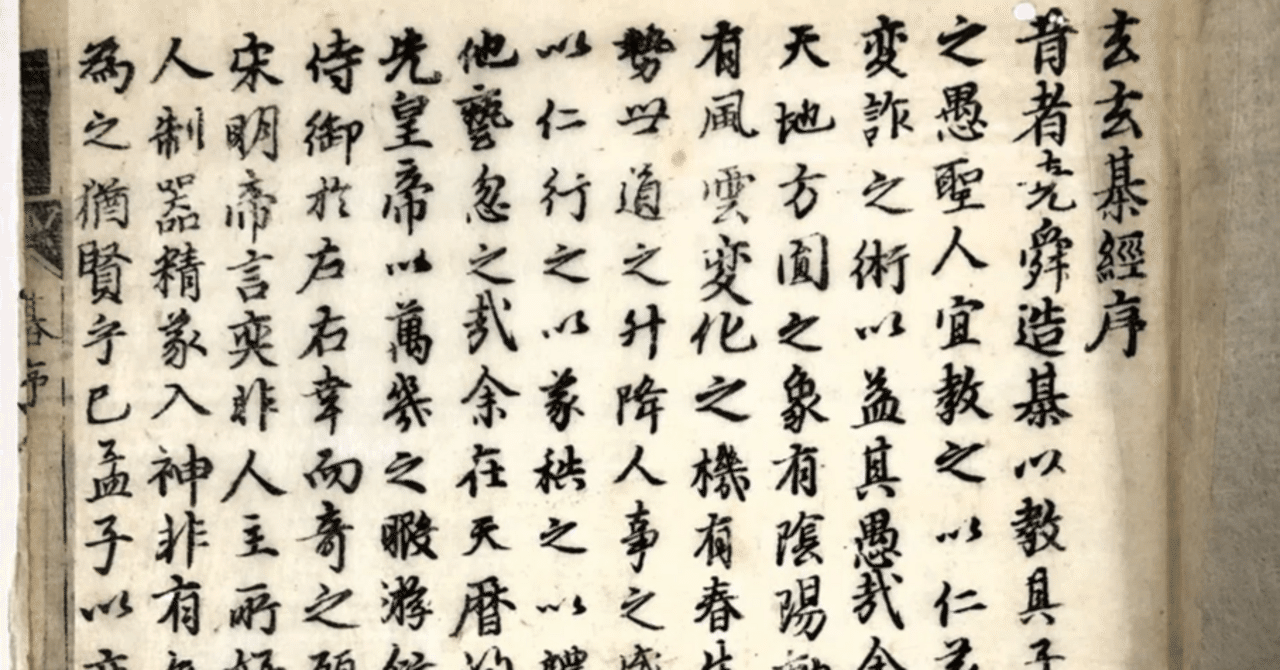 玄玄碁經序
昔者堯舜造碁以教其子
之愚聖人宜教之以仁義
変詐之術以益其愚哉余
天地方圓之象有陰陽動
有風雲変化之機有春生
勢世道之升降人事之盛
以仁行之以義秩之以禮
他藝忽之哉余在天曆
先皇帝以萬幾之暇游
侍御於左右幸而奇之
宋明帝言奕非人主所好
人制器精義入神非有
為之猶賢乎已孟子以
碁序